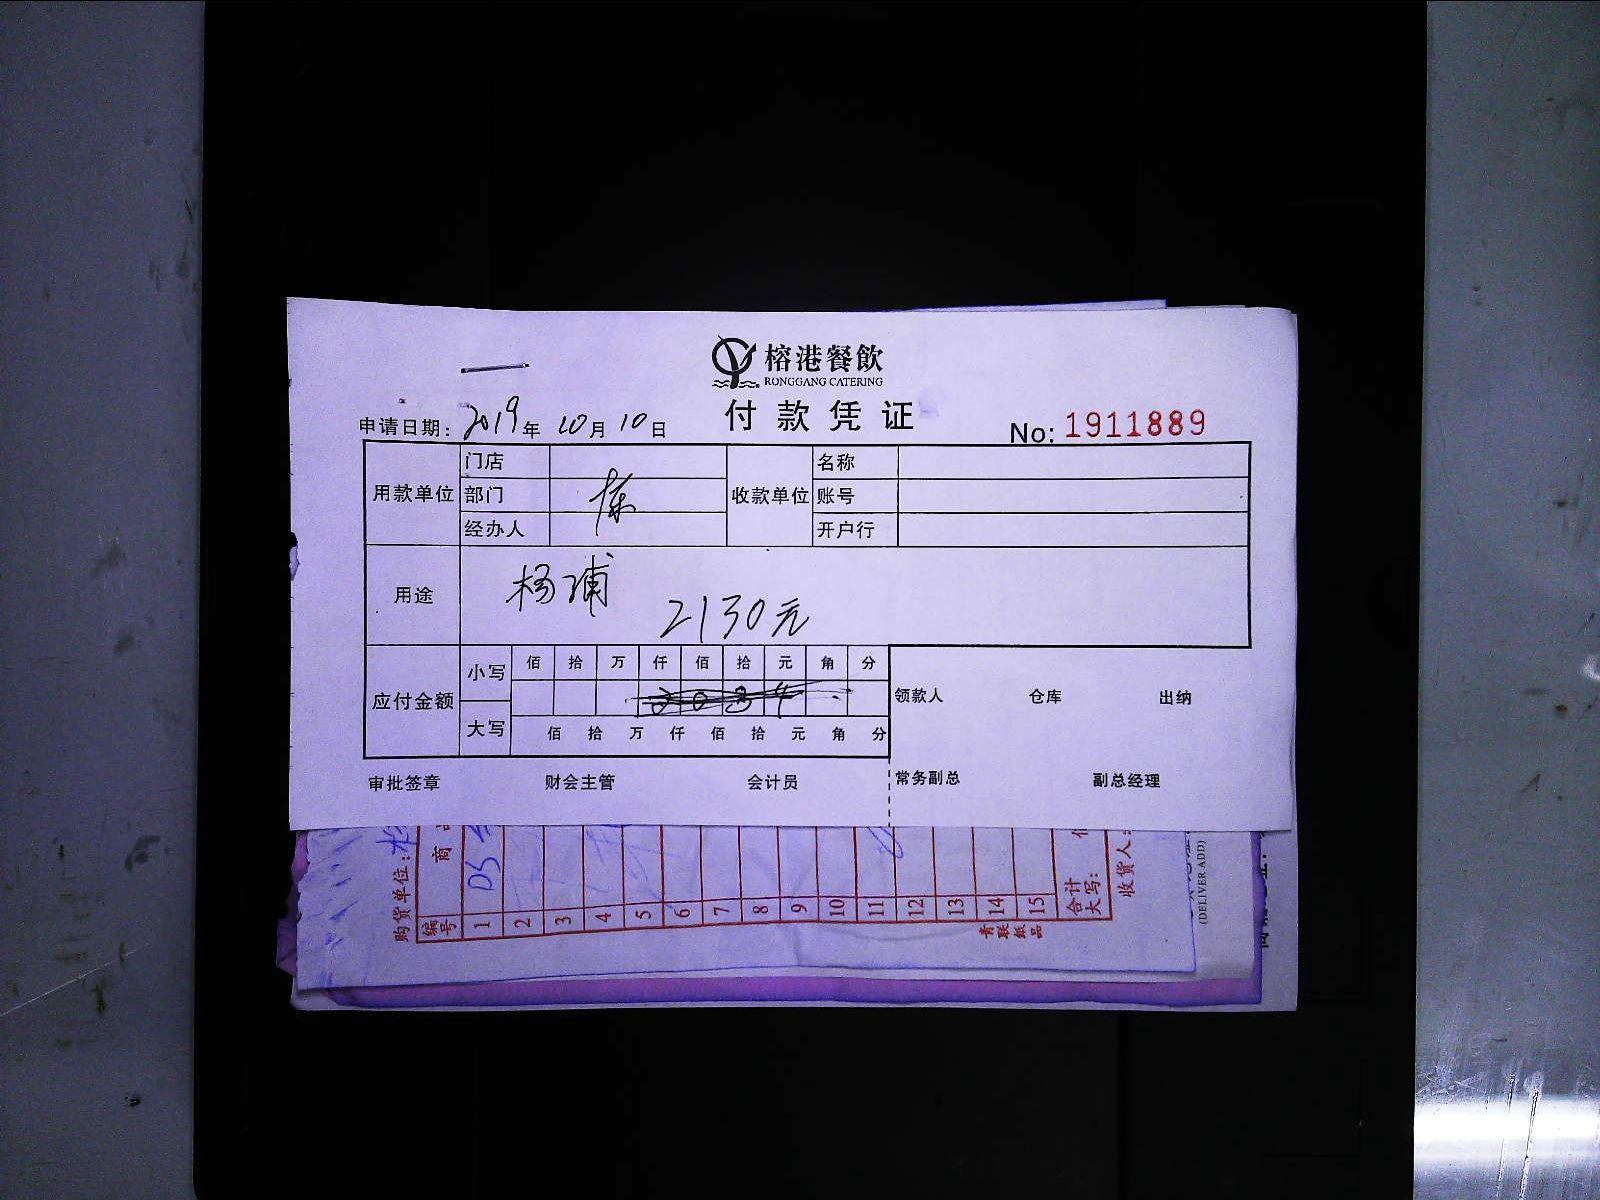 榕港餐飲
RONGGANG CATERING
付款凭证
申请日期: 2019年 10月 10日
No: 1911889
用款单位 门店 收款单位 名称
部门 账号
经办人 开户行
用途 杨浦
2130元
应付金额 小写 佰 拾 万 仟 佰 拾 元 角 分
2 0 3 4
大写 佰 拾 万 仟 佰 拾 元 角 分
领款人 仓库 出纳
审批签章 财会主管 会计员 常务副总 副总经理
购货单位:
编号 商
1 DS
2
3
4
5
6
7
8
9
10
11
12
13
14
15
合计大写:
收货人:
青联纸品
(DELIVER ADD)